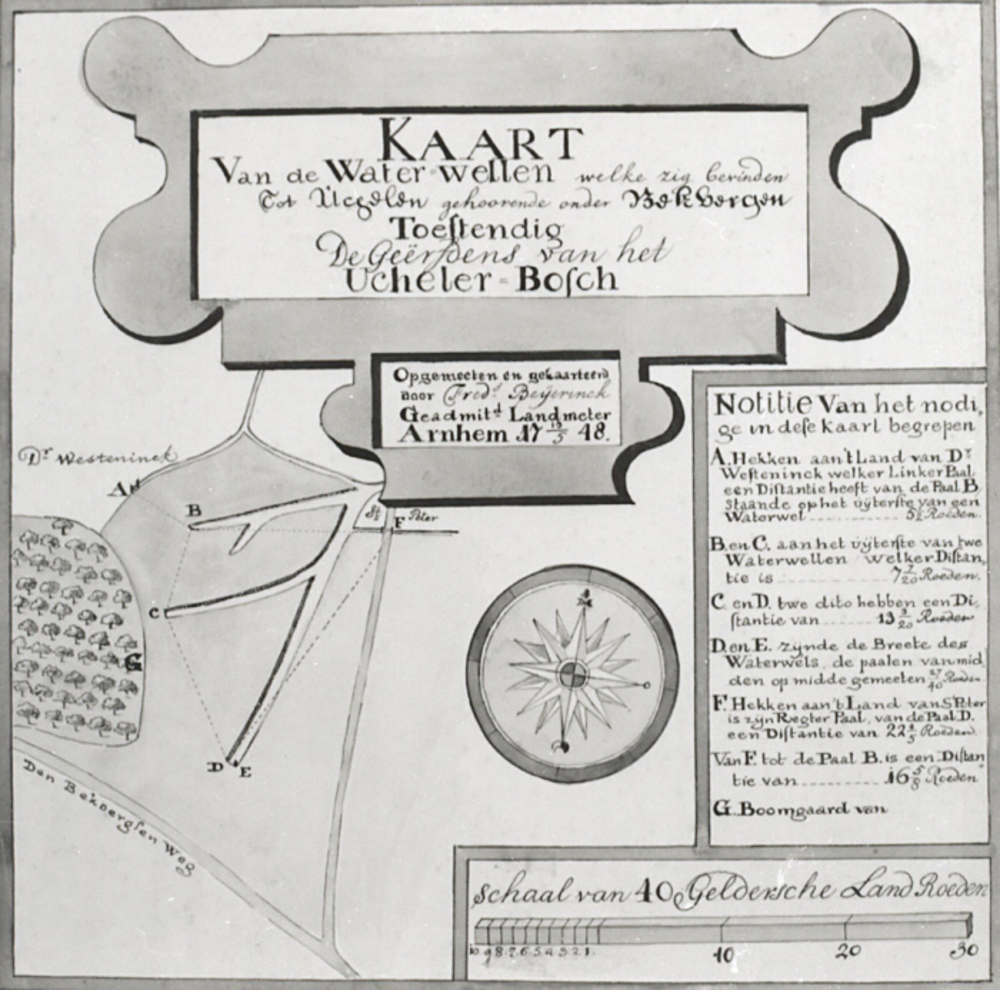 KAART
Van de Water wellen welke zig bevinden
Tot Ucgelen gehoorende onder Bekbergen
Toestendig
De Geërfdens van het
Ucheler-Bosch
Opgemeeten en gekaarteerd
door Fred. Beÿerinck
Geadmit.d Landmeter
Arnhem 17 13/5 48.
D.r Westeninck
A
B
St. Peter
F
C
G
D E
Den Bekbergsen Weg
Notitie Van het nodi,
ge in dese kaart begrepen
A. Hekken aan't Land van D.r
Westeninck welker Linker Paal
een Distantie heeft van de Paal B
staande op het uÿterste van een
Waterwel Roeden.
B. en C. aan het uÿterste van twe
Waterwellen welker Distan,
tie is 7 7/20 Roeden.
C. en D. twe dito hebben een Di,
stantie van 13 3/20 Roeden
D. en E. zÿnde de Breete des
Waterwels, de paalen van mid
den op midde gemeeten 27/40 Roeden.
F. Hekken aan't Land van S Peter
is zÿn Regter Paal, van de Paal D.
een Distantie van 22 Roeden.
Van F. tot de Paal B. is een Distan
tie van 16 5/8 Roeden
G. Boomgaard van
Schaal van 40 Geldersche Land Roeden
10 9 8 7 6 5 4 3 2 1 10 20 30